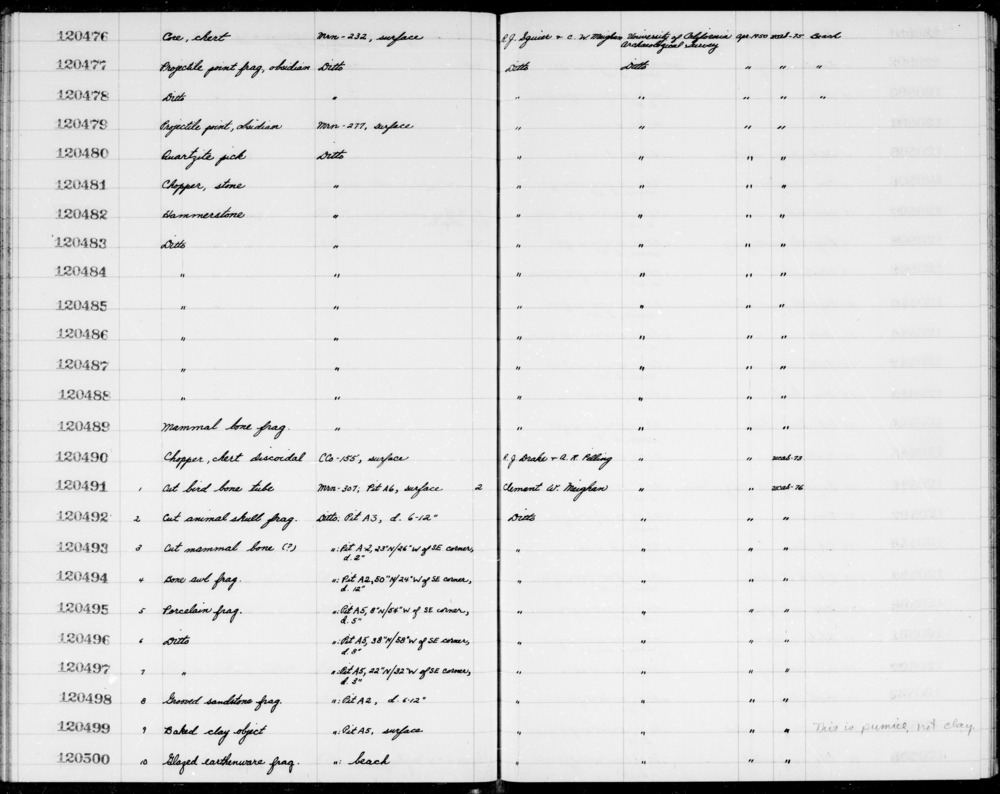 120476 Core, chert Mrn-232, surface R.J. Squier + C. W. Meighan University of California Archaeological Survey Apr. 1950 ucas-75 Board
120477 Projectile point frag, obsidian Ditto Ditto Ditto " " "
120478 Ditto " " " " " "
120479 Projectile point, obsidian Mrn-277, surface " " " "
120480 Quartzite pick Ditto " " " "
120481 Chopper, stone " " " " "
120482 Hammerstone " " " " "
120483 Ditto " " " " "
120484 " " " " " "
120485 " " " " " "
120486 " " " " " "
120487 " " " " " "
120488 " " " " " "
120489 Mammal bone frag. " " " " "
120490 Chopper, chert discoidal CCo-155, surface R.J. Drake + A.R. Pilling " " ucas-73
120491 1 Cut bird bone tube Mrn-307; Pit A6, surface 2 Clement W. Meighan " " ucas-76
120492 2 Cut animal skull frag. Ditto: Pit A3, d. 6-12" Ditto " " "
120493 3 Cut mammal bone (?) ": Pit A-2, 23"N/26"W of SE corner, d. 2" " " " "
120494 4 Bone awl frag. ": Pit A2, 50"N/24"W of SE corner, d. 12" " " " "
120495 5 Porcelain frag. ": Pit A5, 8"N/54"W of SE corner, d. 5" " " " "
120496 6 Ditto ": Pit A5, 38"N/58"W of SE corner, d. 8" " " " "
120497 7 " ": Pit A5, 22"N/32"W of SE corner, d. 3" " " " "
120498 8 Grooved sandstone frag. ": Pit A2, d. 6-12" " " " "
120499 9 Baked clay object ": Pit A5, surface " " " " This is pumice, not clay.
120500 10 Glazed earthenware frag. ": beach " " " "